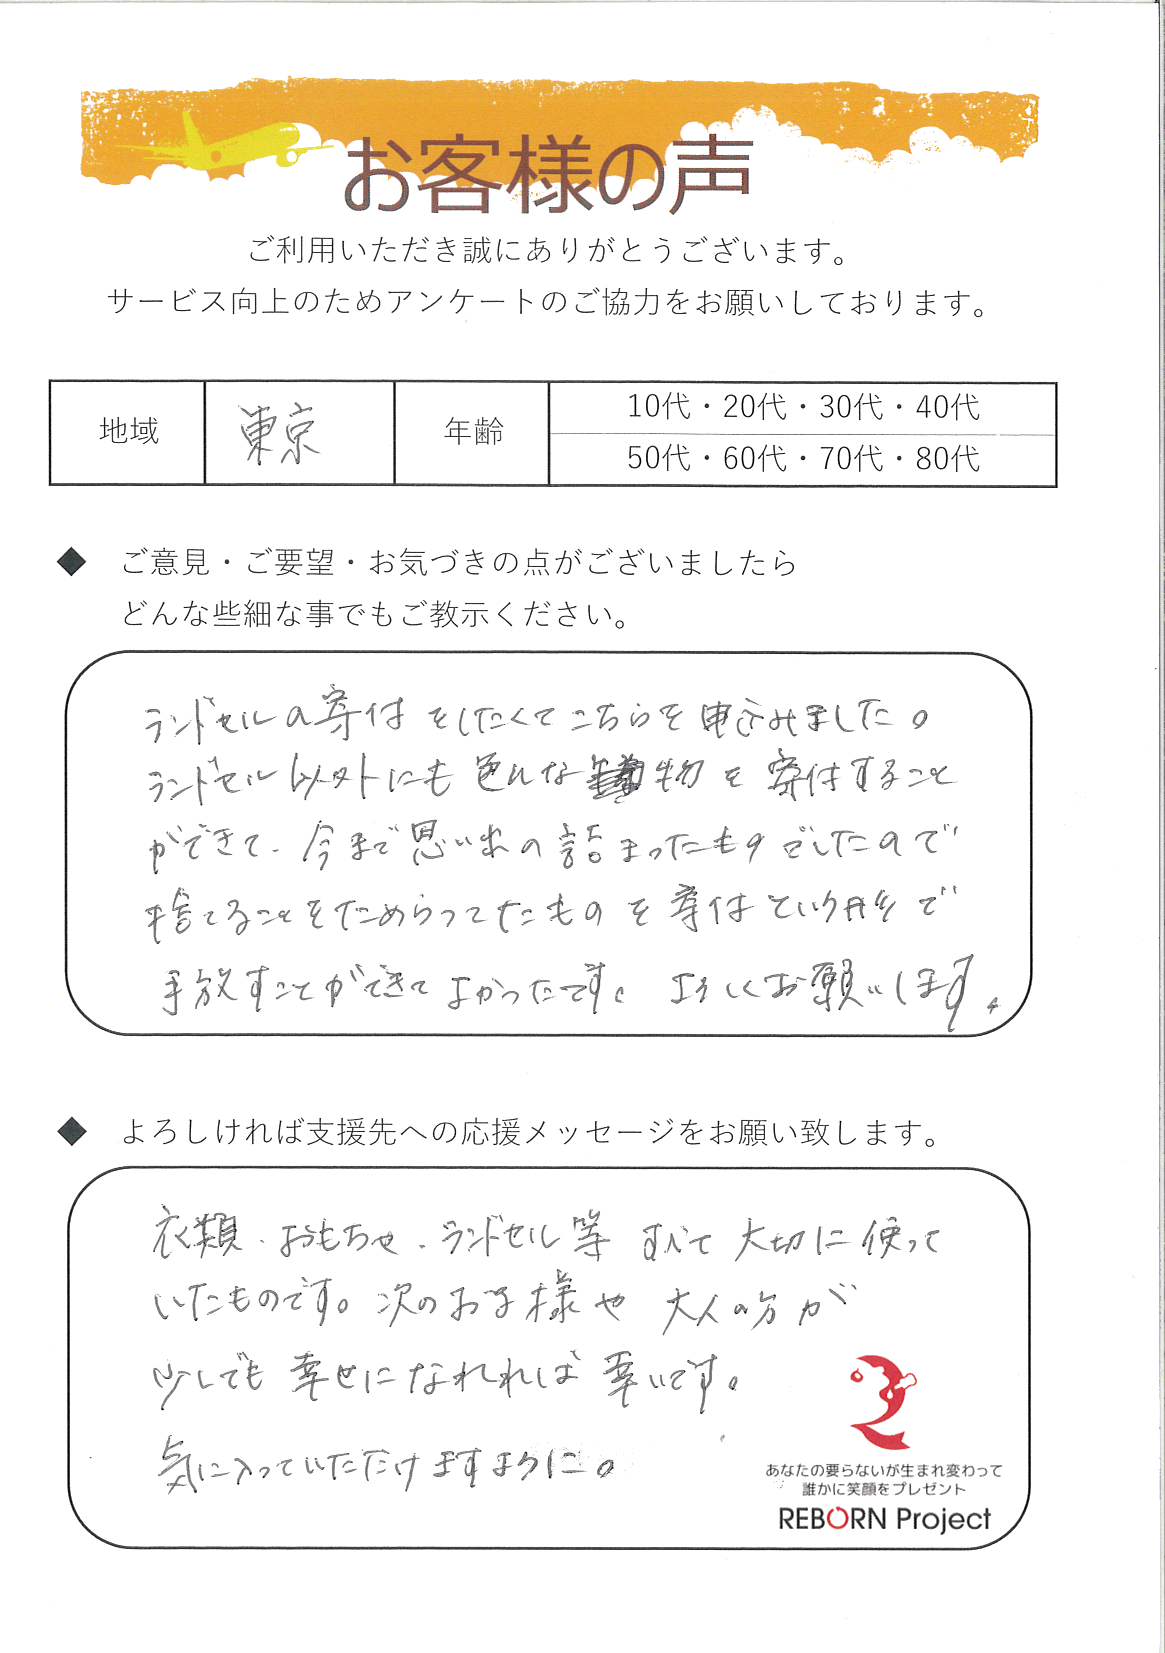 お客様の声
ご利用いただき誠にありがとうございます。
サービス向上のためアンケートのご協力をお願いしております。
地域 東京 年齢 10代・20代・30代・40代
50代・60代・70代・80代
◆ ご意見・ご要望・お気づきの点がございましたら
どんな些細な事でもご教示ください。
ランドセルの寄付をしたくてこちらを申込みました。
ランドセル以外にも色んな物を寄付すること
ができて、今まで思い出の詰まったものでしたので
捨てることをためらってたものを寄付という形で
手放すことができてよかったです。よろしくお願いします。
◆ よろしければ支援先への応援メッセージをお願い致します。
衣類、おもちゃ、ランドセル等 すべて大切に使って
いたものです。次のお子様や 大人の方が
少しでも幸せになれれば幸いです。
気に入っていただけますように。
あなたの要らないが生まれ変わって
誰かに笑顔をプレゼント
REBORN Project